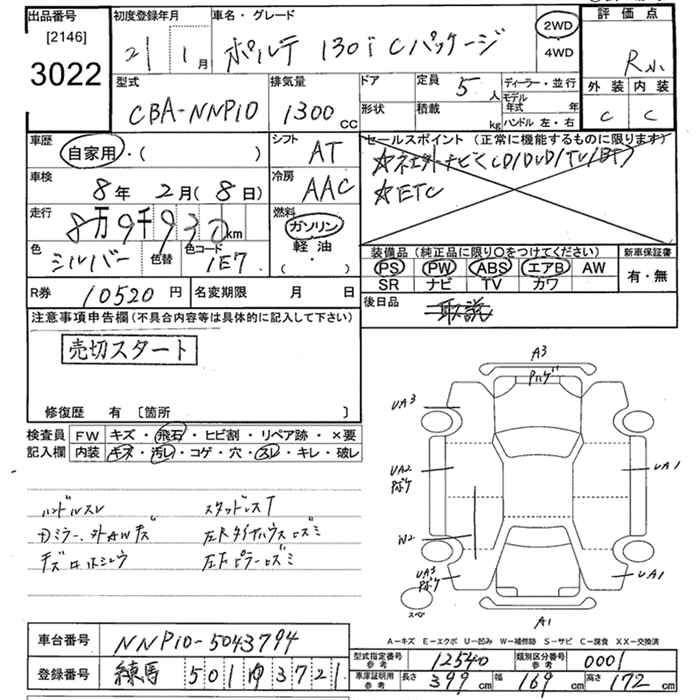 出品番号
[2146]
3022
初度登録年月
21 1月
車名・グレード
ポルテ 130i Cパッケージ
2WD
4WD
評価点
R小
外装 内装
C C
型式
CBA-NNP10
排気量
1300 CC
ドア
形状
定員 5人
積載 kg
ディーラー・並行
モデル年式 年
ハンドル 左・右
車歴
自家用・( )
シフト
AT
セールスポイント (正常に機能するものに限ります)
CD/DVD/TV/BT)
☆ETC
車検
8年 2月(8日)
冷房
AAC
走行
8万9千930km
燃料
ガソリン
軽油
( ・ )
色
シルバー
色替
色コード
1E7
装備品 (純正品に限り〇をつけてください)
新車保証書
PS PW ABS エアB AW
SR ナビ TV カワ
有・無
R券 10520円
名変期限 月 日
後日品
取説
注意事項申告欄(不具合内容等は具体的に記入して下さい)
売切スタート
修復歴 有 [箇所 ]
検査員記入欄
FW キズ・飛石・ヒビ割・リペア跡・×要
内装 キズ・汚レ・コゲ・穴・スレ・キレ・破レ
ハンドルスレ スタッドレスT
Dミラー、外AWキズ
A3
UA3
UA2
UA1
W2
UA3
UA1
A1
スペア
A-キズ E-エクボ U-凹み W-補修跡 S-サビ C-腐食 XX-交換済
車台番号 NNP10-5043794
登録番号 練馬 501 3721
型式指定番号 参考 12540
類別区分番号 参考 0001
車庫証明用 参考 長さ 399cm 幅 169cm 高さ 172cm